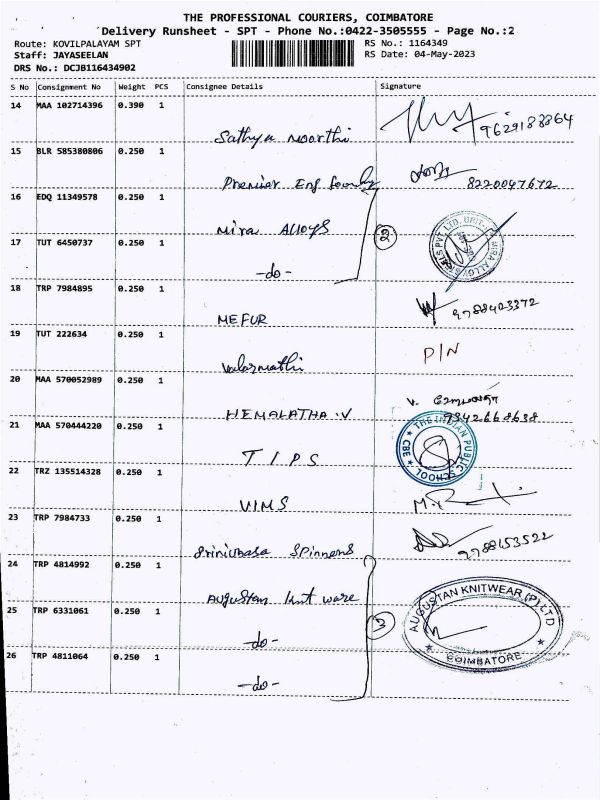 THE PROFESSIONAL COURIERS, COIMBATORE
Delivery Runsheet - SPT - Phone No.:0422-3505555 - Page No.:2
Route: KOVILPALAYAM SPT RS No.: 1164349
Staff: JAYASEELAN RS Date: 04-May-2023
DRS No.: DCJB116434902
S No Consignment No Weight PCS Consignee Details Signature
14 MAA 102714396 0.390 1
Sathya Moorthi 9629183864
15 BLR 585380806 0.250 1
Premier Eng foundry 8220047672
16 EDQ 11349578 0.250 1
Mira Alloys
17 TUT 6450737 0.250 1 2
-do-
18 TRP 7984895 0.250 1
MEFUR 9788403372
19 TUT 222634 0.250 1
Valarmathi P/N
20 MAA 570052989 0.250 1
HEMALATHA.V 9342668638
21 MAA 570444220 0.250 1
TIPS THE INDIAN PUBLIC SCHOOL CBE
22 TRZ 135514328 0.250 1
VIMS
23 TRP 7984733 0.250 1
Srinivasa Spinners 9788153522
24 TRP 4814992 0.250 1
Augustan knit ware
25 TRP 6331061 0.250 1 3 AUGUSTAN KNITWEAR (P) LTD
-do- COIMBATORE
26 TRP 4811064 0.250 1
-do-